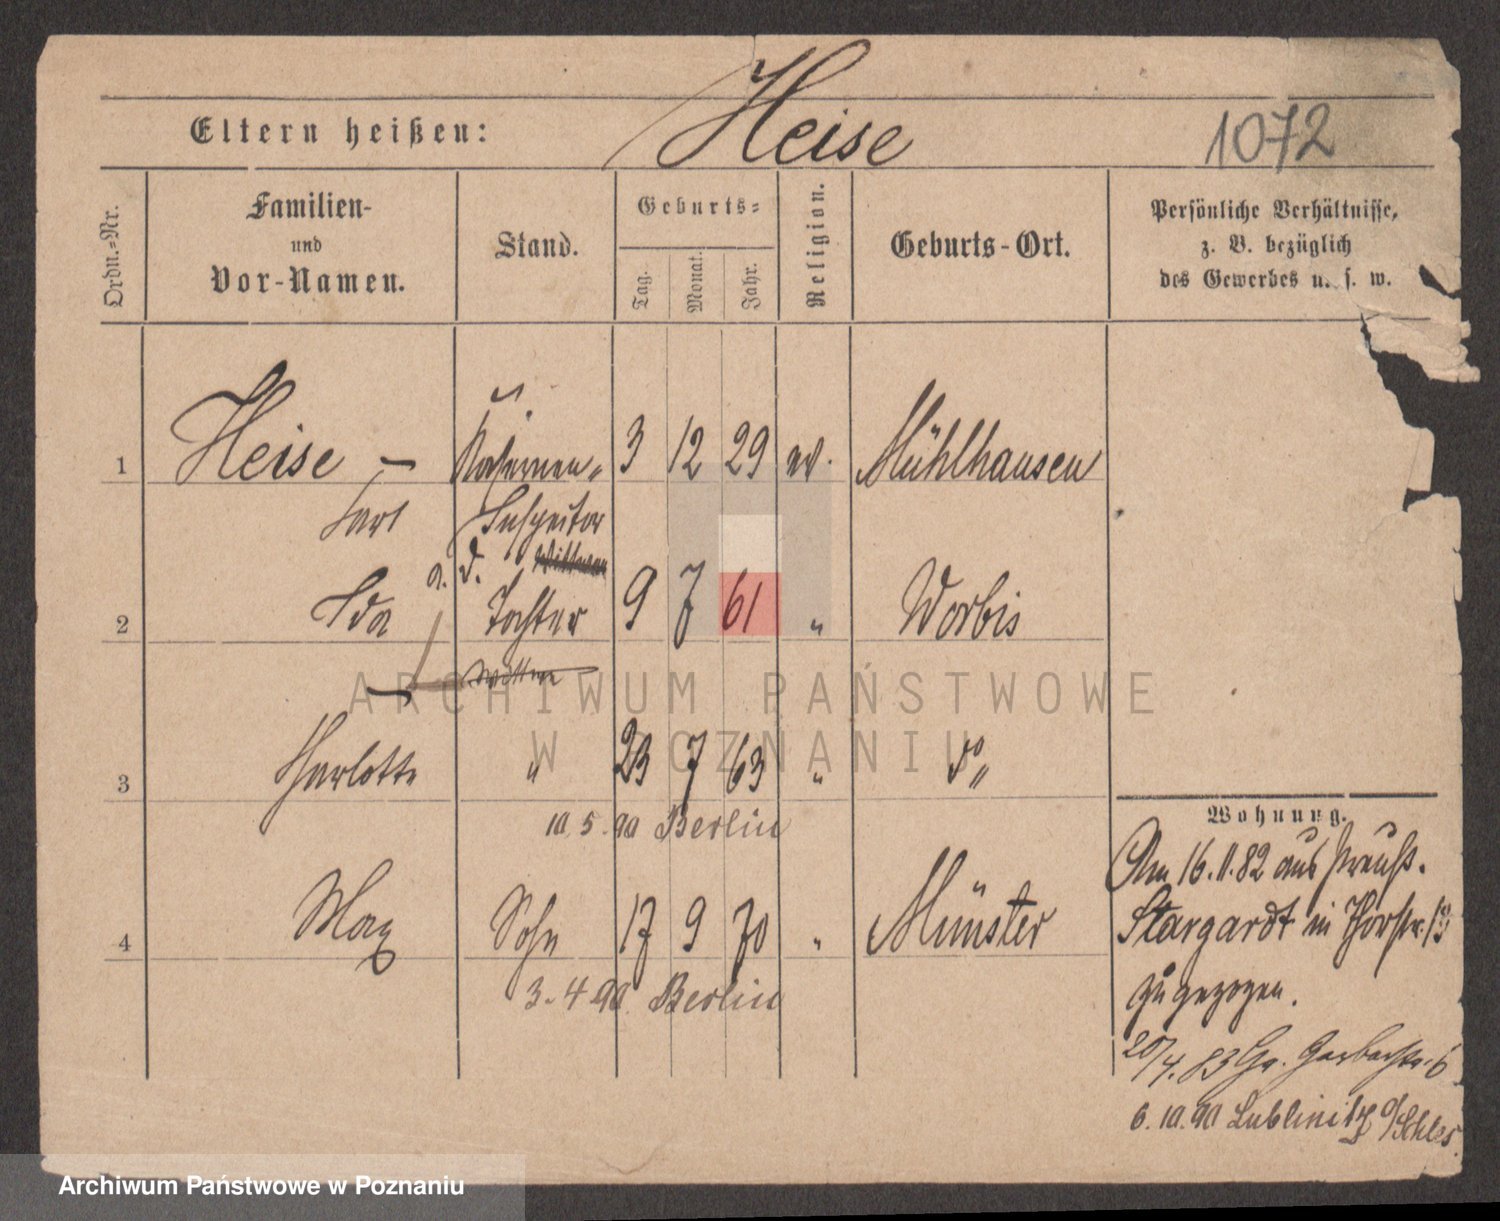 Eltern heißen: Heise 1072
Ordn.-Nr.
Familien-
und
Vor-Namen.
Stand.
Geburts-
Tag.
Monat.
Jahr.
Religion.
Geburts-Ort.
Persönliche Verhältnisse,
z. B. bezüglich
des Gewerbes u. s. w.
1 Heise – Kasernen- 3 12 29 ev. Mühlhausen
Carl Inspector
a. D. Wittwer
2 Ida Tochter 9 7 61 " Worbis
Wittwe
3 Charlotte " 23 7 63 " do "
10.5.90 Berlin
4 Max Sohn 17 9 70 " Münster
3.4.90 Berlin
Wohnung.
Am 16.11.82 aus Preuß.
Stargardt in Thorstr. 13
zugezogen.
20/4.83 Gr. Gerberstr. 6
6.10.90 Lublinitz O/Schles.
ARCHIWUM PAŃSTWOWE
W POZNANIU
Archiwum Państwowe w Poznaniu